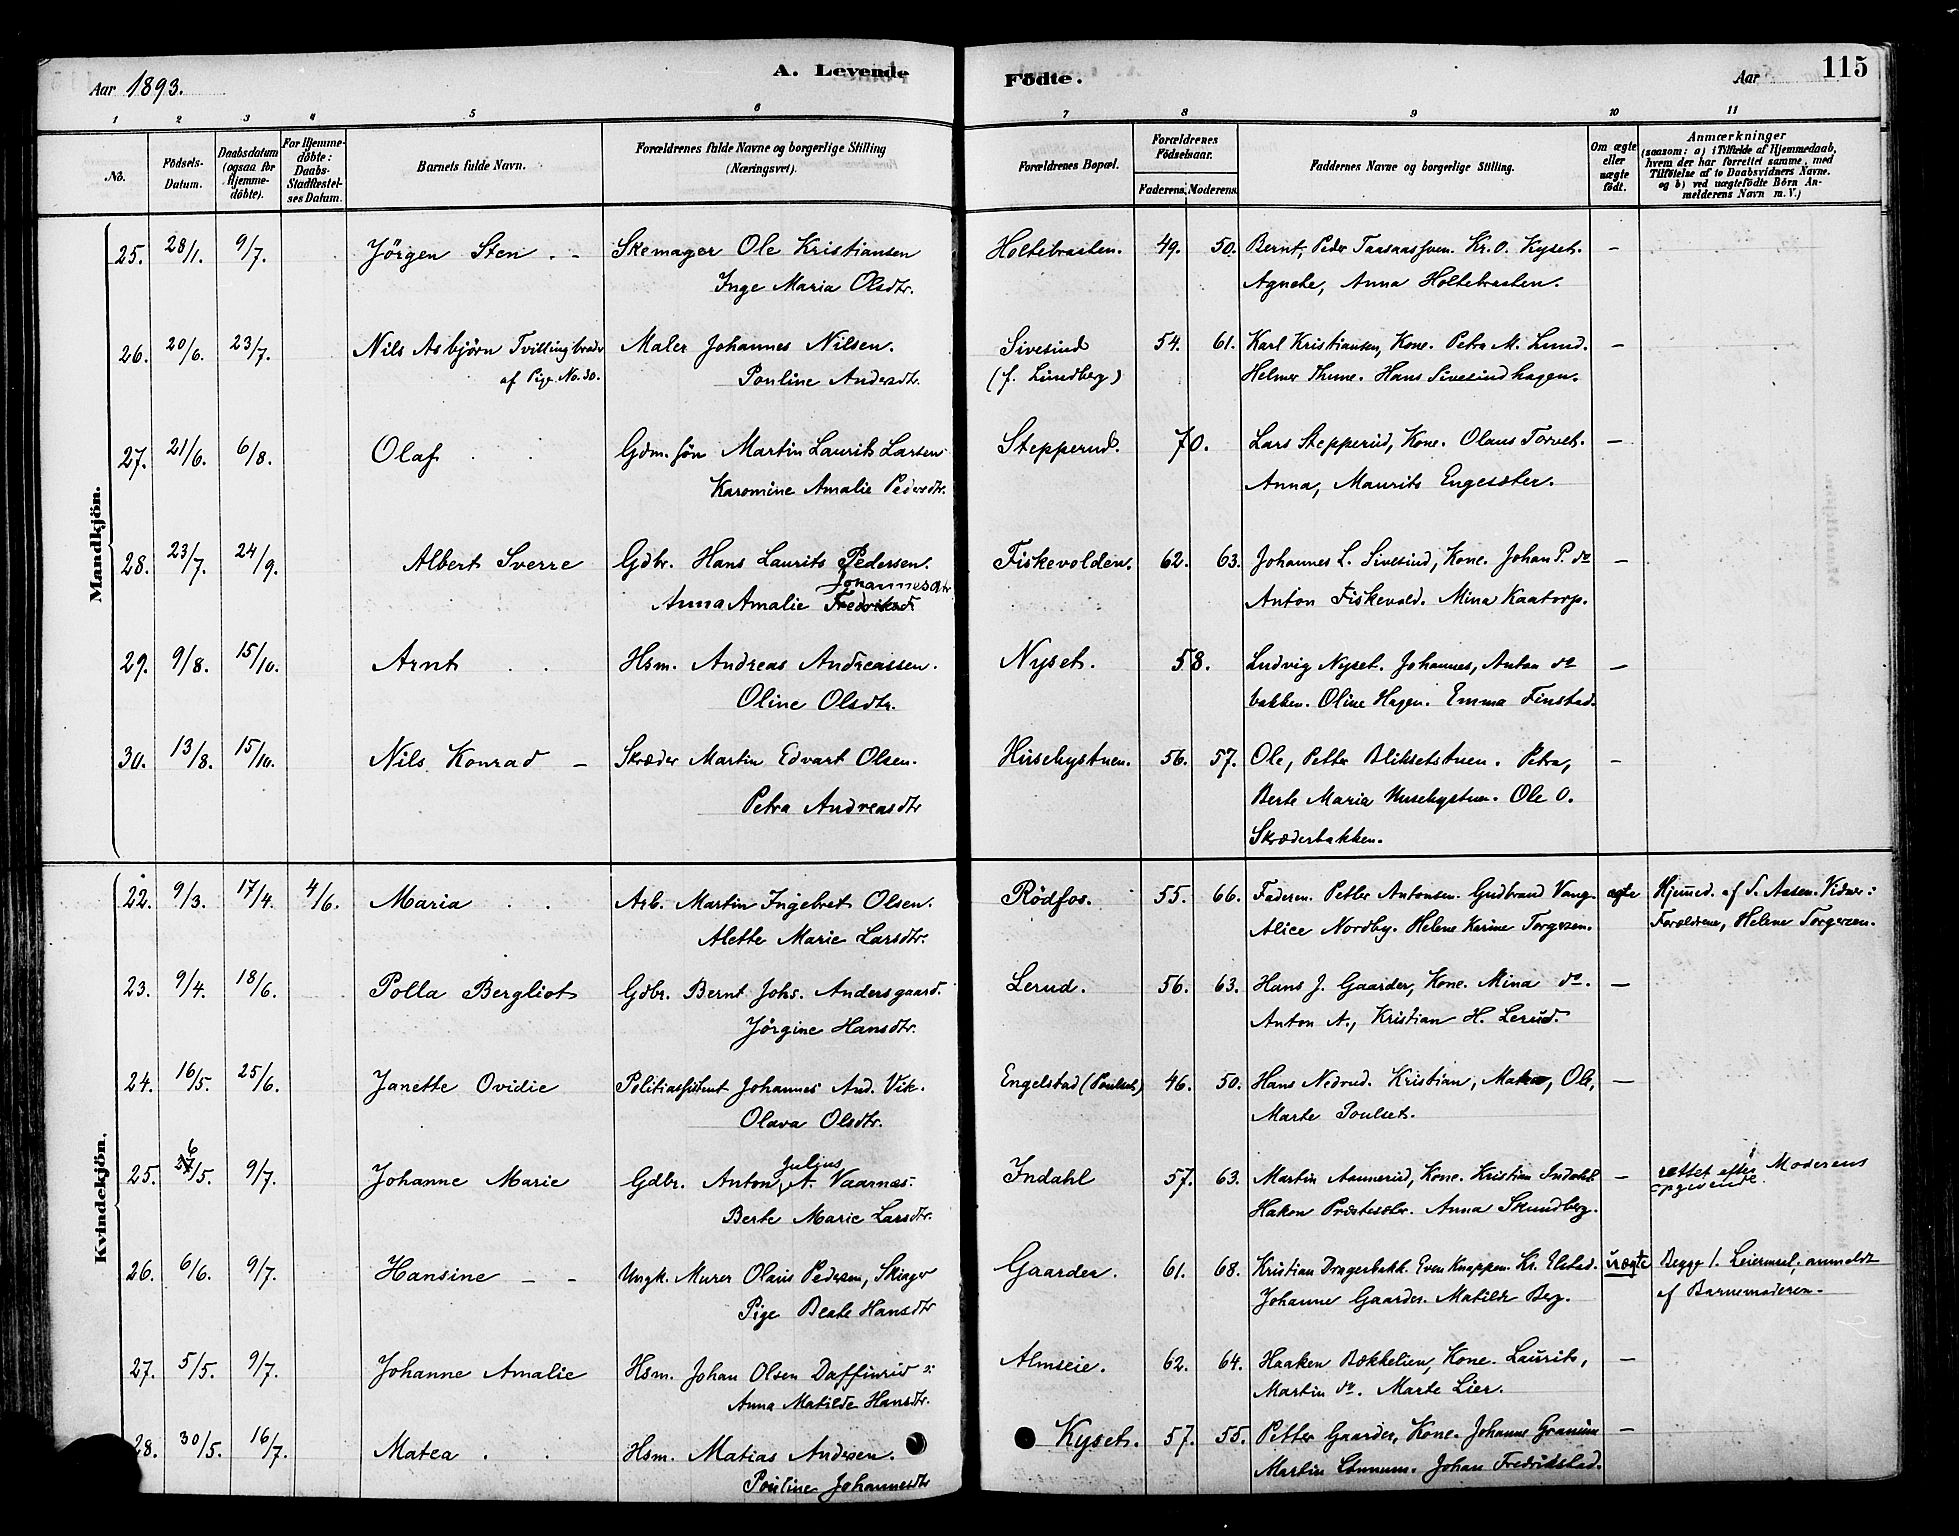 A. Levende Födte.
Aar 1893.
Aar 115
1 2 3 4 5 6 7 8 9 10 11
No.
Födsels-Datum.
Daabsdatum (ogsaa för Hjemme-döbte).
For Hjemme-döbte: Daabs-Stadfæstel-ses Datum.
Barnets fulde Navn.
Forældrenes fulde Navne og borgerlige Stilling (Næringsvei).
Forældrenes Bopæl.
Forældrenes Födselsaar.
Faderens. Moderens.
Faddernes Navne og borgerlige Stilling.
Om ægte eller uægte födt.
Anmærkninger
(saasom: a) i Tilfælde af Hjemmedaab, hvem der har forrettet samme, med Tilföielse af to Daabsvidners Navne. og b) ved uægtefödte Börn An-melderens Navn m. V.)
Mandkjön.
25. 28/1. 9/7. Jörgen Sten Skomager Ole Kristiansen Holtebraaten. 49. 50. Bernt, Peder Kr. O. Kyset. –
Inge Maria Olsdtr. Agnete, Anna Holtebraaten.
26. 20/6. 23/7. Nils Asbjörn Tvillingbroder Maler Johannes Nilsen. Sivesind 54. 61. Karl Kristiansen, Kone. Petra M. Lund. –
af Pige No. 30. Pouline Andersdtr. (f. Lundberg) Helmer Thune. Hans Sivesindhagen.
27. 21/6. 6/8. Olaf Gdm. sön Martin Laurits Larsen Stepperud. 70. Lars Stepperud, Kone. Olaus Torvet. –
Karomine Amalie Pedersdtr. Anna, Maurits Engesæter.
28. 23/7. 24/9. Albert Sverre Gdbr. Hans Laurits Pedersen. Fiskevolden. 62. 63. Johannes L. Sivesind, Kone. Johan P. do –
Johannesdtr
Anna Amalie Fredriksd Anton Fiskevold. Mina Kaatorp.
29. 9/8. 15/10. Arnt Hsm. Andreas Andreassen. Nyset. 58. Ludvig Nyset. Johannes, Anton do –
Oline Olsdtr. bakken. Oline Hagen. Emma Finstad.
30. 13/8. 15/10. Nils Konrad – Skræder Martin Edvart Olsen. Husebystuen. 56. 57. Ole, Petter Bliksetstuen. Petra, –
Petra Andreasdtr Berte Maria Husebystuen. Ole O.
Skræderbakken.
Kvindekjön.
22. 9/3. 17/4. 4/6. Maria Arb. Martin Ingebret Olsen. Rödfos. 55. 66. Faderen. Petter Antonsen. Gudbrand Vang. ægte Hjemmed. af S. Aasen. Vidner:
Alette Marie Larsdtr. Alice Nordby. Helene Karine Torgersen. Forældrene, Helene Torgersen.
23. 9/4. 18/6. Polla Bergliot Gdbr. Bernt Johs. Andersgaard. Lerud. 56. 63. Hans J. Gaarder, Kone. Mina do. –
Jörgine Hansdtr. Anton A., Kristian H. Lerud.
24. 16/5. 25/6. Janette Ovidie Politiassistent Johannes And. Vik. Engelstad (Poulset) 46. 50. Hans Nedrud. Kristian, Ole, –
Olava Olsdtr. Marte Poulset.
25. 26/5. 9/7. Johanne Marie Gdbr. Anton Julius A. Vaarnæs. Indahl 57. 63. Martin Aannerud, Kone. Kristian Indahl. – rettet efter Moderens
opgivende.
Berte Marie Larsdtr. Hakon Præstesæter. Anna Skundberg.
26. 6/6. 9/7. Hansine – – Ungk. Murer Olaus Pedersen, Skinger Gaarder. 61. 68. Kristian Dragerbakk. Even Knappen. Kr. Elstad. uægte Begge 1. Leiermaal. anmeldt
Pige Beate Hansdtr Johanne Gaarder. Matilde Berg. af Barnemoderen.
27. 5/5. 9/7. Johanne Amalie Hsm. Johan Olsen Daffinrud Almseie. 62. 64. Haaken Bækkelien, Kone. Laurits, –
Anna Matilde Hansdtr. Martin do. Marte Lier.
28. 30/5. 16/7. Matea Hsm. Matias Andersen. Kyset. 57. 55. Petter Gaarder, Kone. Johanne Granum –
Pouline Johannesdtr Martin Johan Fredrikstad.